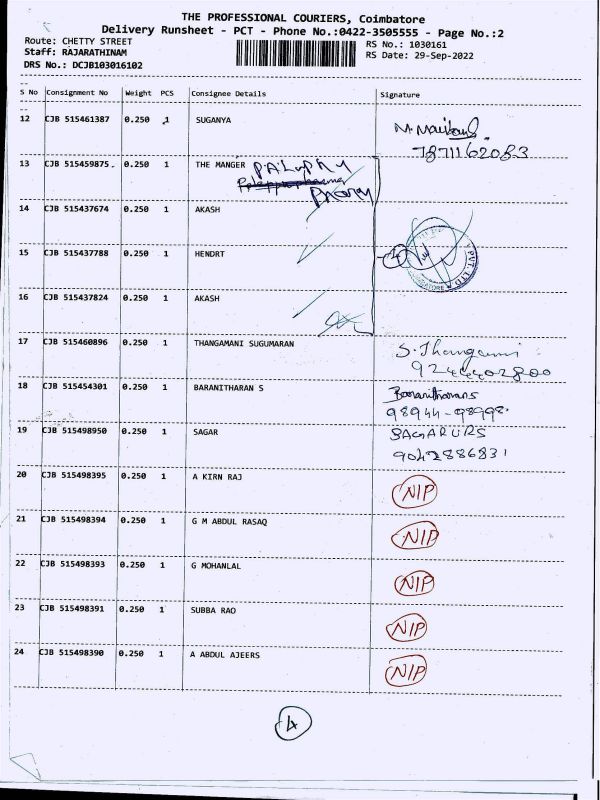 THE PROFESSIONAL COURIERS, Coimbatore
Delivery Runsheet - PCT - Phone No.:0422-3505555 - Page No.:2
Route: CHETTY STREET
RS No.: 1030161
Staff: RAJARATHINAM
RS Date: 29-Sep-2022
DRS No.: DCJB103016102
S No Consignment No Weight PCS Consignee Details Signature
12 CJB 515461387 0.250 1 SUGANYA
7871162083
13 CJB 515459875 0.250 1 THE MANGER
14 CJB 515437674 0.250 1 AKASH
15 CJB 515437788 0.250 1 HENDRT
16 CJB 515437824 0.250 1 AKASH
17 CJB 515460896 0.250 1 THANGAMANI SUGUMARAN
9244402800
18 CJB 515454301 0.250 1 BARANITHARAN S
98944-98998
19 CJB 515498950 0.250 1 SAGAR SAGARURS
9042886831
20 CJB 515498395 0.250 1 A KIRN RAJ NIP
21 CJB 515498394 0.250 1 G M ABDUL RASAQ NIP
22 CJB 515498393 0.250 1 G MOHANLAL NIP
23 CJB 515498391 0.250 1 SUBBA RAO NIP
24 CJB 515498390 0.250 1 A ABDUL AJEERS NIP
4